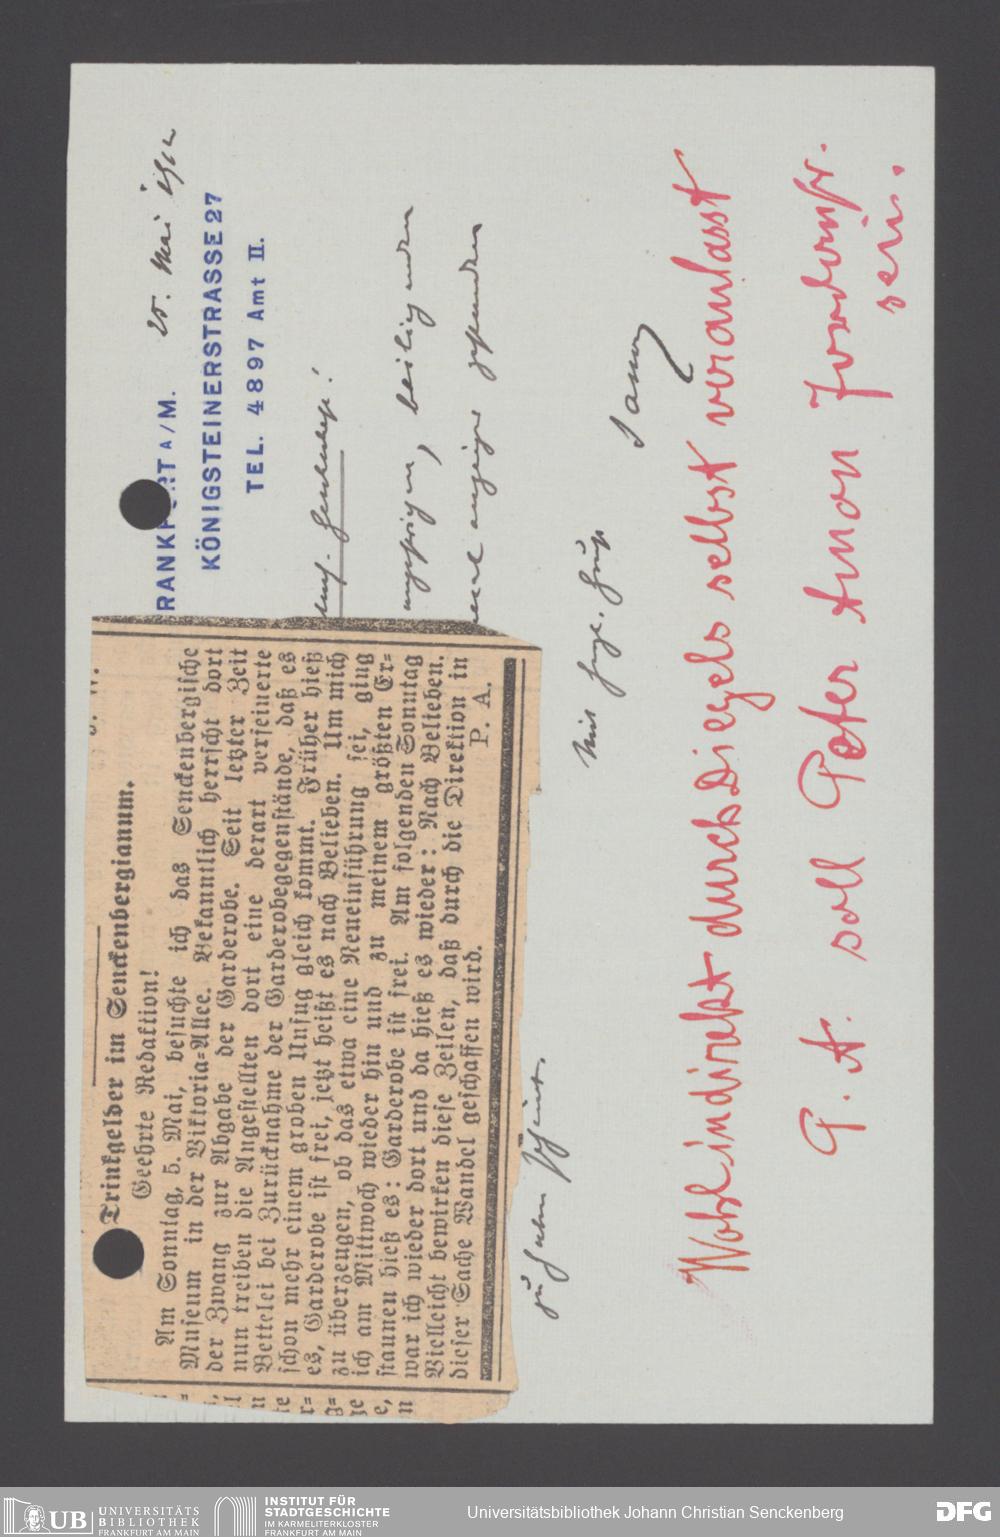 RANKFURT A/M.
25. Mai 1912
KÖNIGSTEINERSTRASSE 27
TEL. 4897 Amt II.
beiliegenden
zu haben scheint.
Mit
Trinkgelder im Senckenbergianum.
Geehrte Redaktion!
Am Sonntag, 5. Mai, besuchte ich das Senckenbergische
Museum in der Viktoria-Allee. Bekanntlich herrscht dort
der Zwang zur Abgabe der Garderobe. Seit letzter Zeit
nun treiben die Angestellten dort eine derart verfeinerte
Bettelei bei Zurücknahme der Garderobegegenstände, daß es
schon mehr einem groben Unfug gleich kommt. Früher hieß
es, Garderobe ist frei, jetzt heißt es nach Belieben. Um mich
zu überzeugen, ob das etwa eine Neueinführung sei, ging
ich am Mittwoch wieder hin und zu meinem größten Er-
staunen hieß es: Garderobe ist frei. Am folgenden Sonntag
war ich wieder dort und da hieß es wieder: Nach Belieben.
Vielleicht bewirken diese Zeilen, daß durch die Direktion in
dieser Sache Wandel geschaffen wird.
P. A.
Wohl indirekt durch Diegels selbst veranlasst
P. A. soll Peter Amon
sein.
UB UNIVERSITÄTS
BIBLIOTHEK
FRANKFURT AM MAIN
INSTITUT FÜR
STADTGESCHICHTE
IM KARMELITERKLOSTER
FRANKFURT AM MAIN
Universitätsbibliothek Johann Christian Senckenberg
DFG